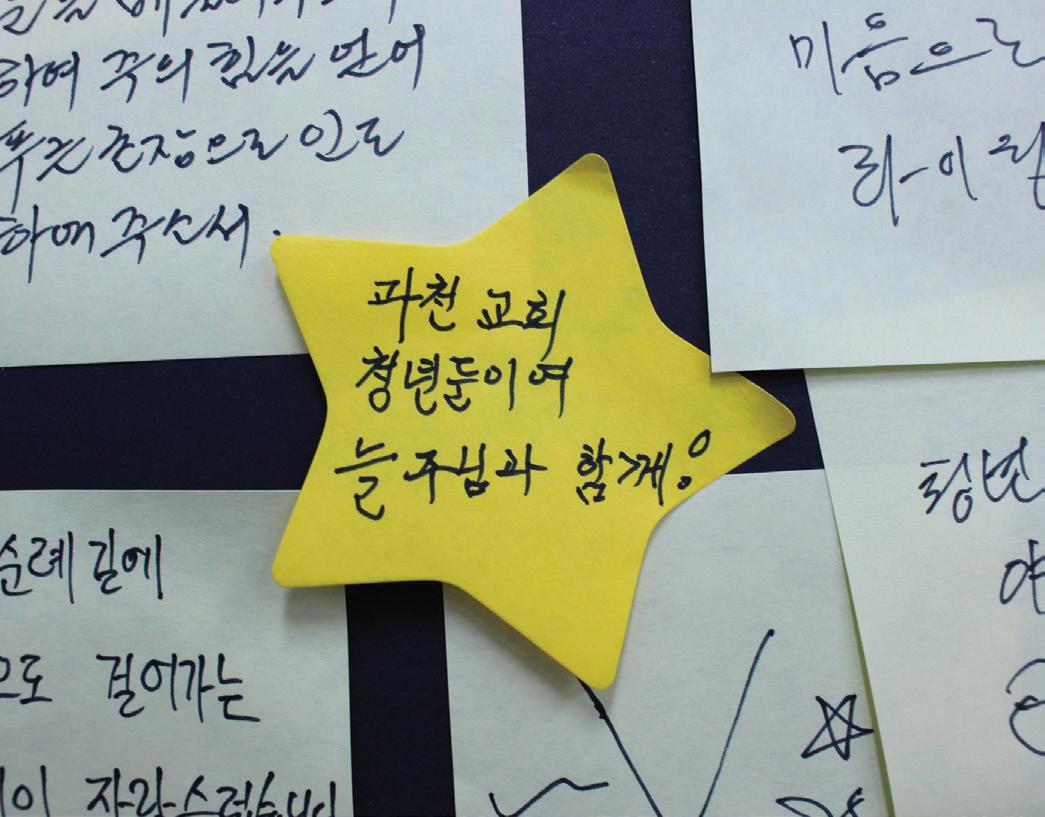 하여 주의 힘을 얻어
푸른 초장으로 인도
하여 주소서.
과천 교회
청년들이여
늘 주님과 함께!
마음으로
라이
청년
순례길에
으로 걸어가는
이 자랑스럽습니다